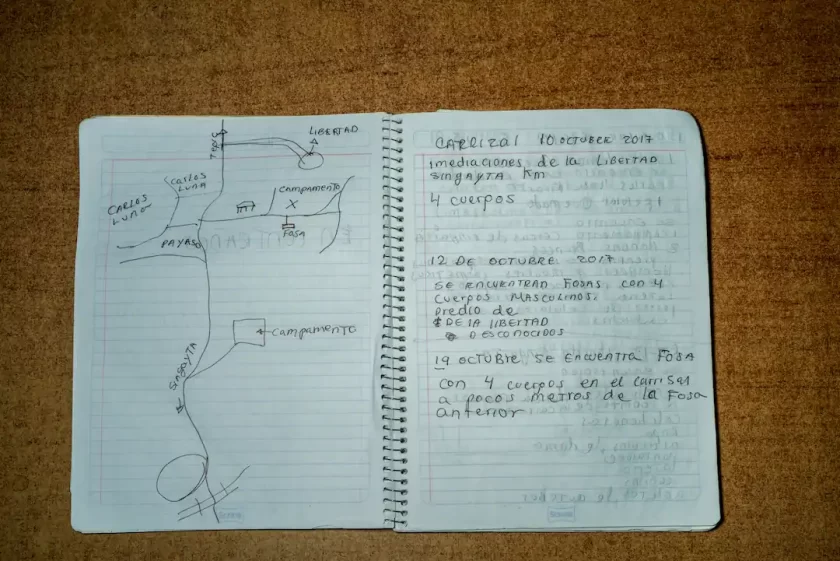 LIBERTAD
CARLOS
LUNA
CARLOS
LUNA
CAMPAMENTO
X
FOSA
PAYASO
CAMPAMENTO
SINGAYTA
CARRIZAL 10 OCTUBRE 2017
IMEDIACIONES DE LA LIBERTAD
SINGAYTA KM
4 CUERPOS
12 DE OCTUBRE 2017
SE ENCUENTRAN FOSAS CON 4
CUERPOS MASCULINOS.
PREDIO DE
DE LA LIBERTAD
DESCONOCIDOS
19 OCTUBRE SE ENCUENTRA FOSA
CON 4 CUERPOS EN EL CARRISAL
A POCOS METROS DE LA FOSA
ANTERIOR